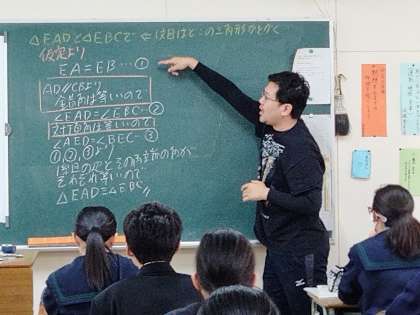 △EADと△EBCで ← 1行目はどこの三角形かをかく
仮定より
EA=EB…①
AD//CBより
錯角は等しいので
∠EAD=∠EBC…②
対頂角は等しいので
∠AED=∠BEC…③
①,②,③より
1組の辺とその両端の角が
それぞれ等しいので
△EAD≡△EBC